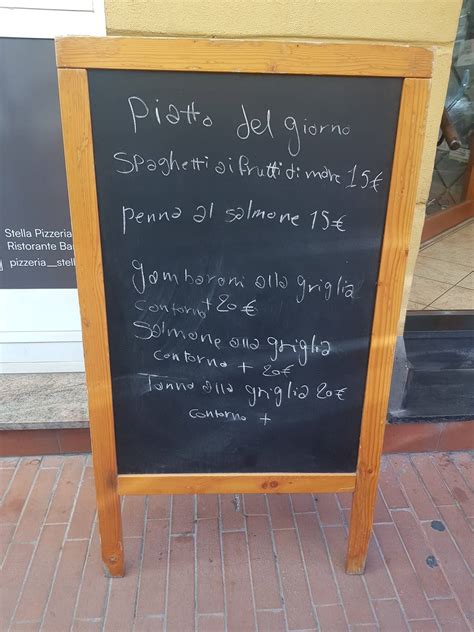 Piatto del giorno
Spaghetti ai frutti di mare 15€
penna al salmone 15€
gambaroni alla griglia
contorno + 20€
Salmone alla griglia
contorno + 20€
Tonno alla griglia 20€
contorno +
Stella Pizzeria
Ristorante Ba
pizzeria_stell